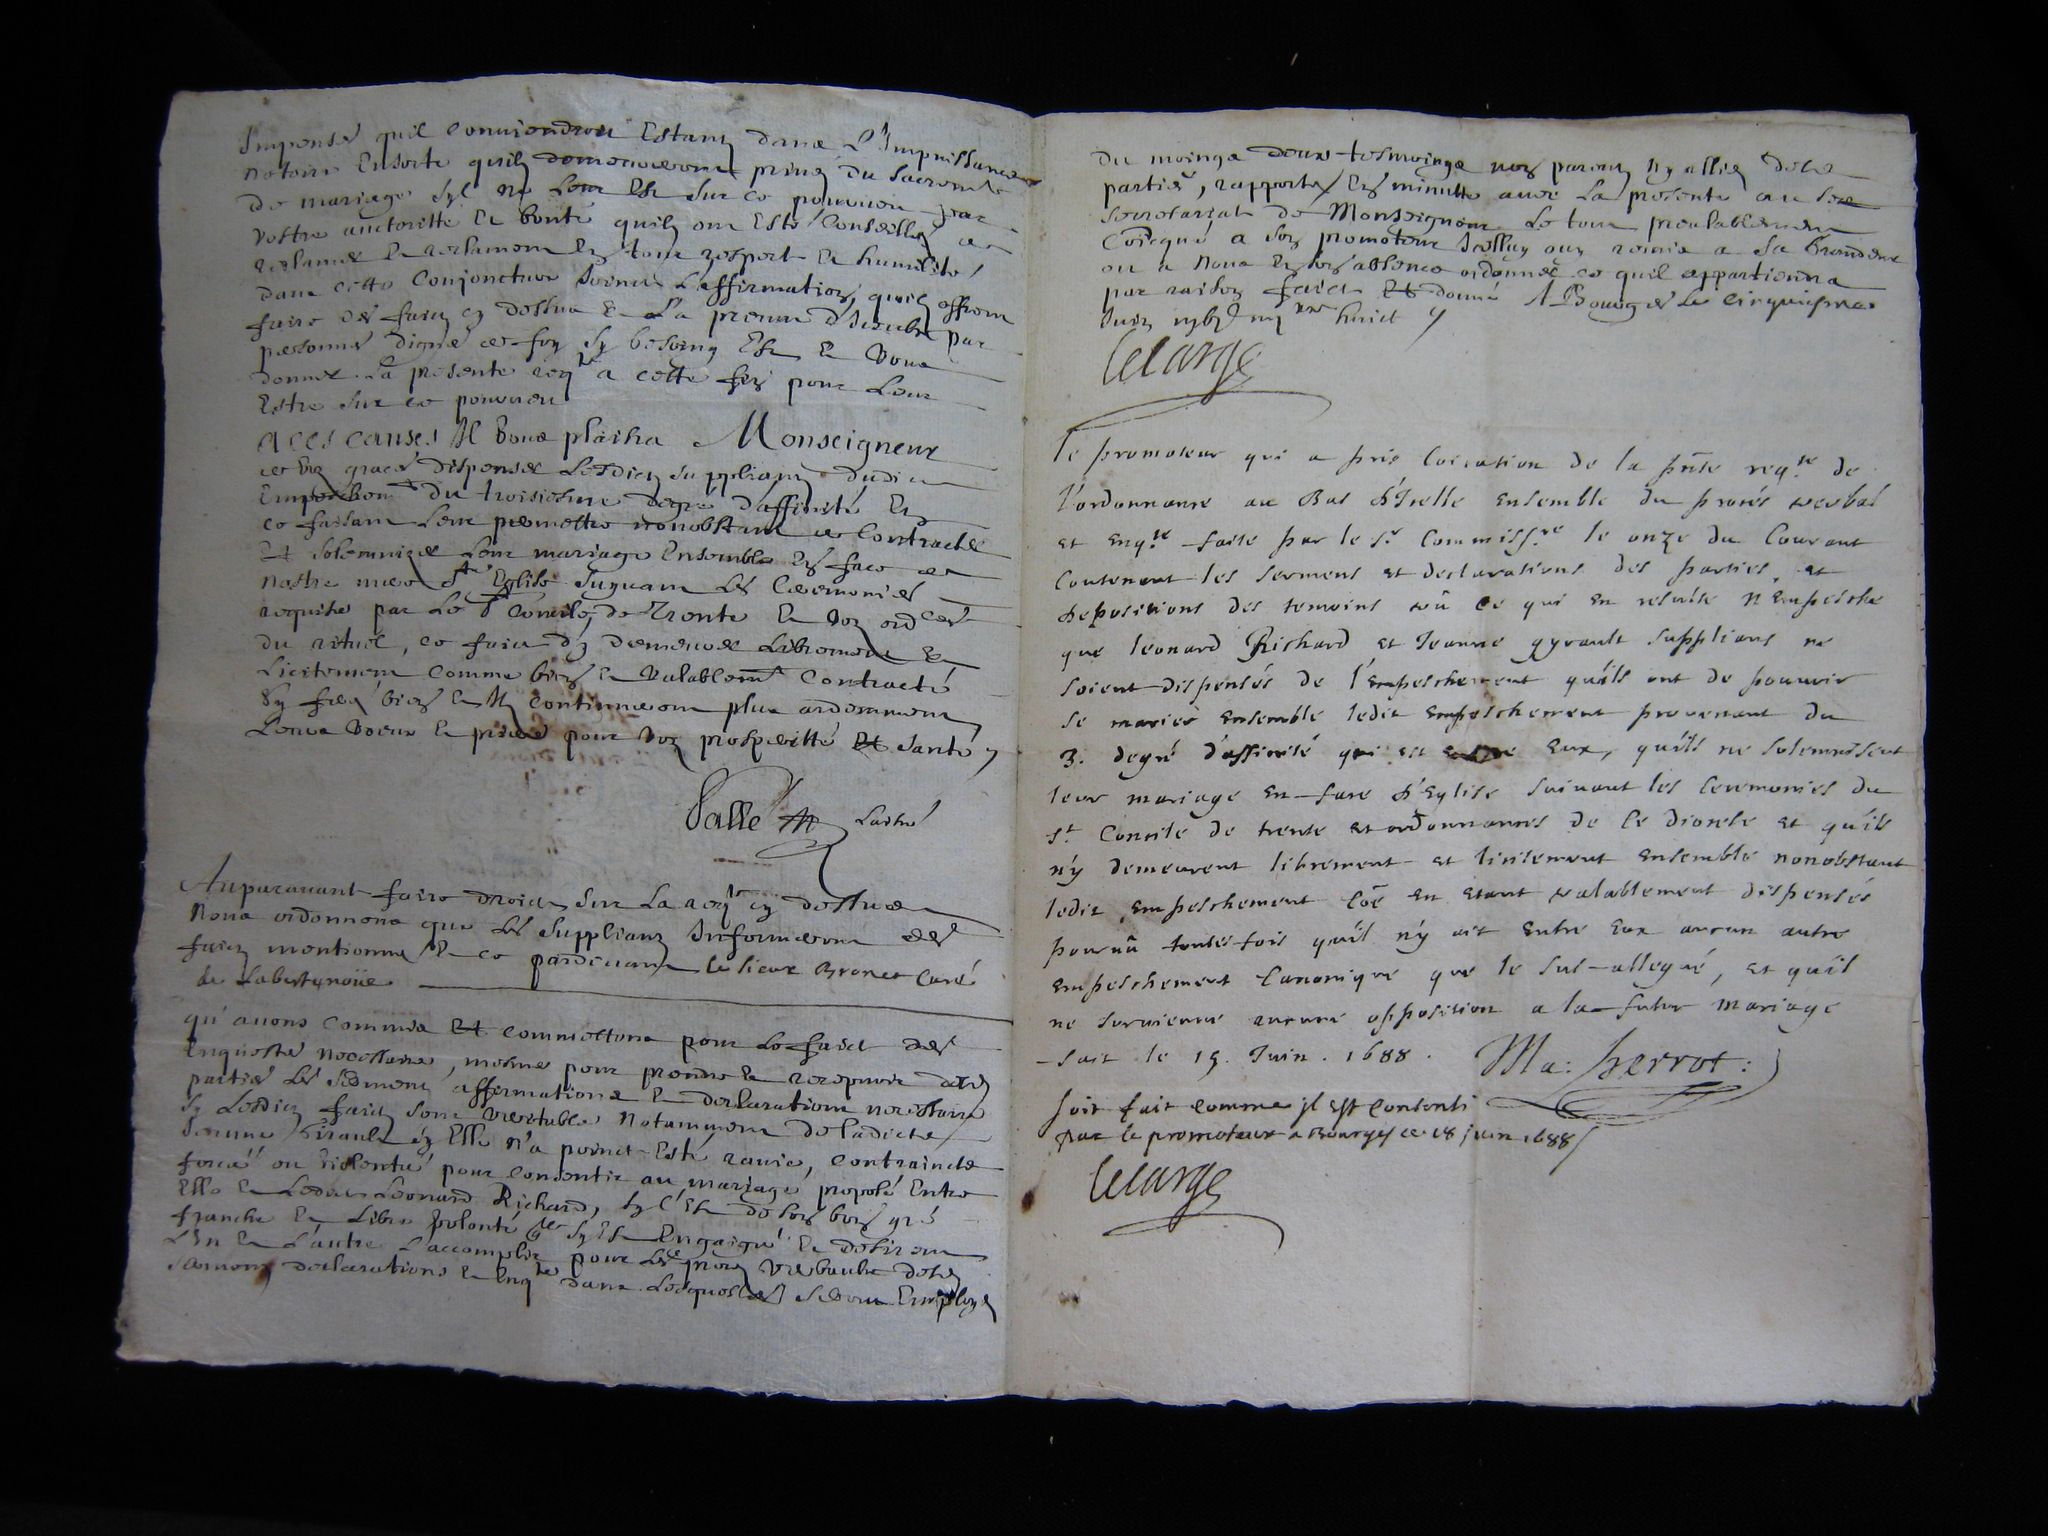 quil conviendroit Estant dans L'Impuissance
notoire Ensorte quilz demeureront privez du sacremt
de mariage syl ne Leur Est sur ce pourveu par
vostre auctoritte Et bonté quilz ont Esté Conseillez de
reclamer Et reclament En tout respect Et humilité
dans cette Conjoncture L'affirmation, quilz offrent
faire des faictz cy dessus Et La preuve d'Iceulx par
personnes dignes de foy sy besoing Est Et vous
donner La presente reqte a cette fin pour Leur
Estre sur ce pourveu
A CES CAUSES Il vous plaira Monseigneur
de voz graces dispenser Lesdictz suppliantz dudict
Empeschemt du troisiesme degré d'affinité En
ce faisant Leur permettre nonobstant de Contracter
Et solemnizer Leur mariage Ensemble En face de
nostre mere Ste Eglise suyvant Les Ceremonies
requises par Le St Concile de Trente Et voz ordces
du rituel, ce faict d'y demeurer Librement Et
Licitement comme bien Et valablemt Contracté
Sy ferez bien Et Ilz continueront plus ardemment
Leurs voeux Et prieres pour voz prosperitté Et santé
Palle
Auparavant faire droict sur La reqte cy dessus
Nous ordonnons que Les suppliantz Informeront des
faictz mentionnez En Ce pardevant le sieur Brunet Curé
de Labertenoüe
qu'avons Commis Et commettons pour Le faict des
Enquestes necessaires, mesme pour prendre Et recepvoir desd
parties Les sermentz affirmations Et declarations necessaires
sy Lesdictz faictz sont veritables Notamment de ladicte
Jeanne Girault sy Elle N'a poinct Esté ravie, contraincte
forcée ou violentée pour Consentir au mariage proposé Entre
Elle Et Ledict Leonard Richard, sy C'Est de son bon gré
franche Et Libre volonté qlle sy Est Engaigée Et desirent
L'Un Et L'autre L'accomplir pour Les procz verbaulx desdz
sermentz declarations Et Enqte dans Lesquelles seront Employez
du moings deux tesmoings non parentz ny alliez desd
parties, rapportez En minutte avec La presente au secr
secretariat de Monseigneur Le tout prealablement
Coïcqué a son promoteur Icelluy ouy remis a sa Grandeur
ou a Nous En son absence ordonner ce quil appartiendra
par raison faict Et donné A Bourges Le cinquiesme
Juin huict
Lelarge
le promoteur qui a pris Coïcation de la pñte reqte de
l'ordonnance au Bas d'Icelle Ensemble du procés verbal
et Enqte faite par le Sr Commissre le onze du Courant
Contenant les sermens et declarations des parties, et
depositions des temoins vû Ce qui en resulte N'Empesche
que leonard Richard et Jeanne gyrault supplians ne
soient dispensés de l'Empeschement qu'ils ont de pouvoir
se marier Ensemble ledit Empeschement provenant du
3. degré d'affinité qui est entre Eux, qu'ils ne solemnisent
leur mariage En face d'Eglise suivant les Ceremonies du
St Concile de trente et ordonnances de Ce diocese et qu'ils
n'y demeurent librement et licitement Ensemble nonobstant
ledit Empeschement Coē en etant valablement dispensés
pourvû toutesfois qu'il n'y ait Entre Eux aucun autre
Empeschement Canonique que le sus-allegué, et qu'il
ne survienne aucune opposition a la futur Mariage
fait le 15. Juin. 1688.
Ma: Perrot:
soit fait comme il est Consenti
par le promoteur a Bourges ce 18 juin 1688
Lelarge